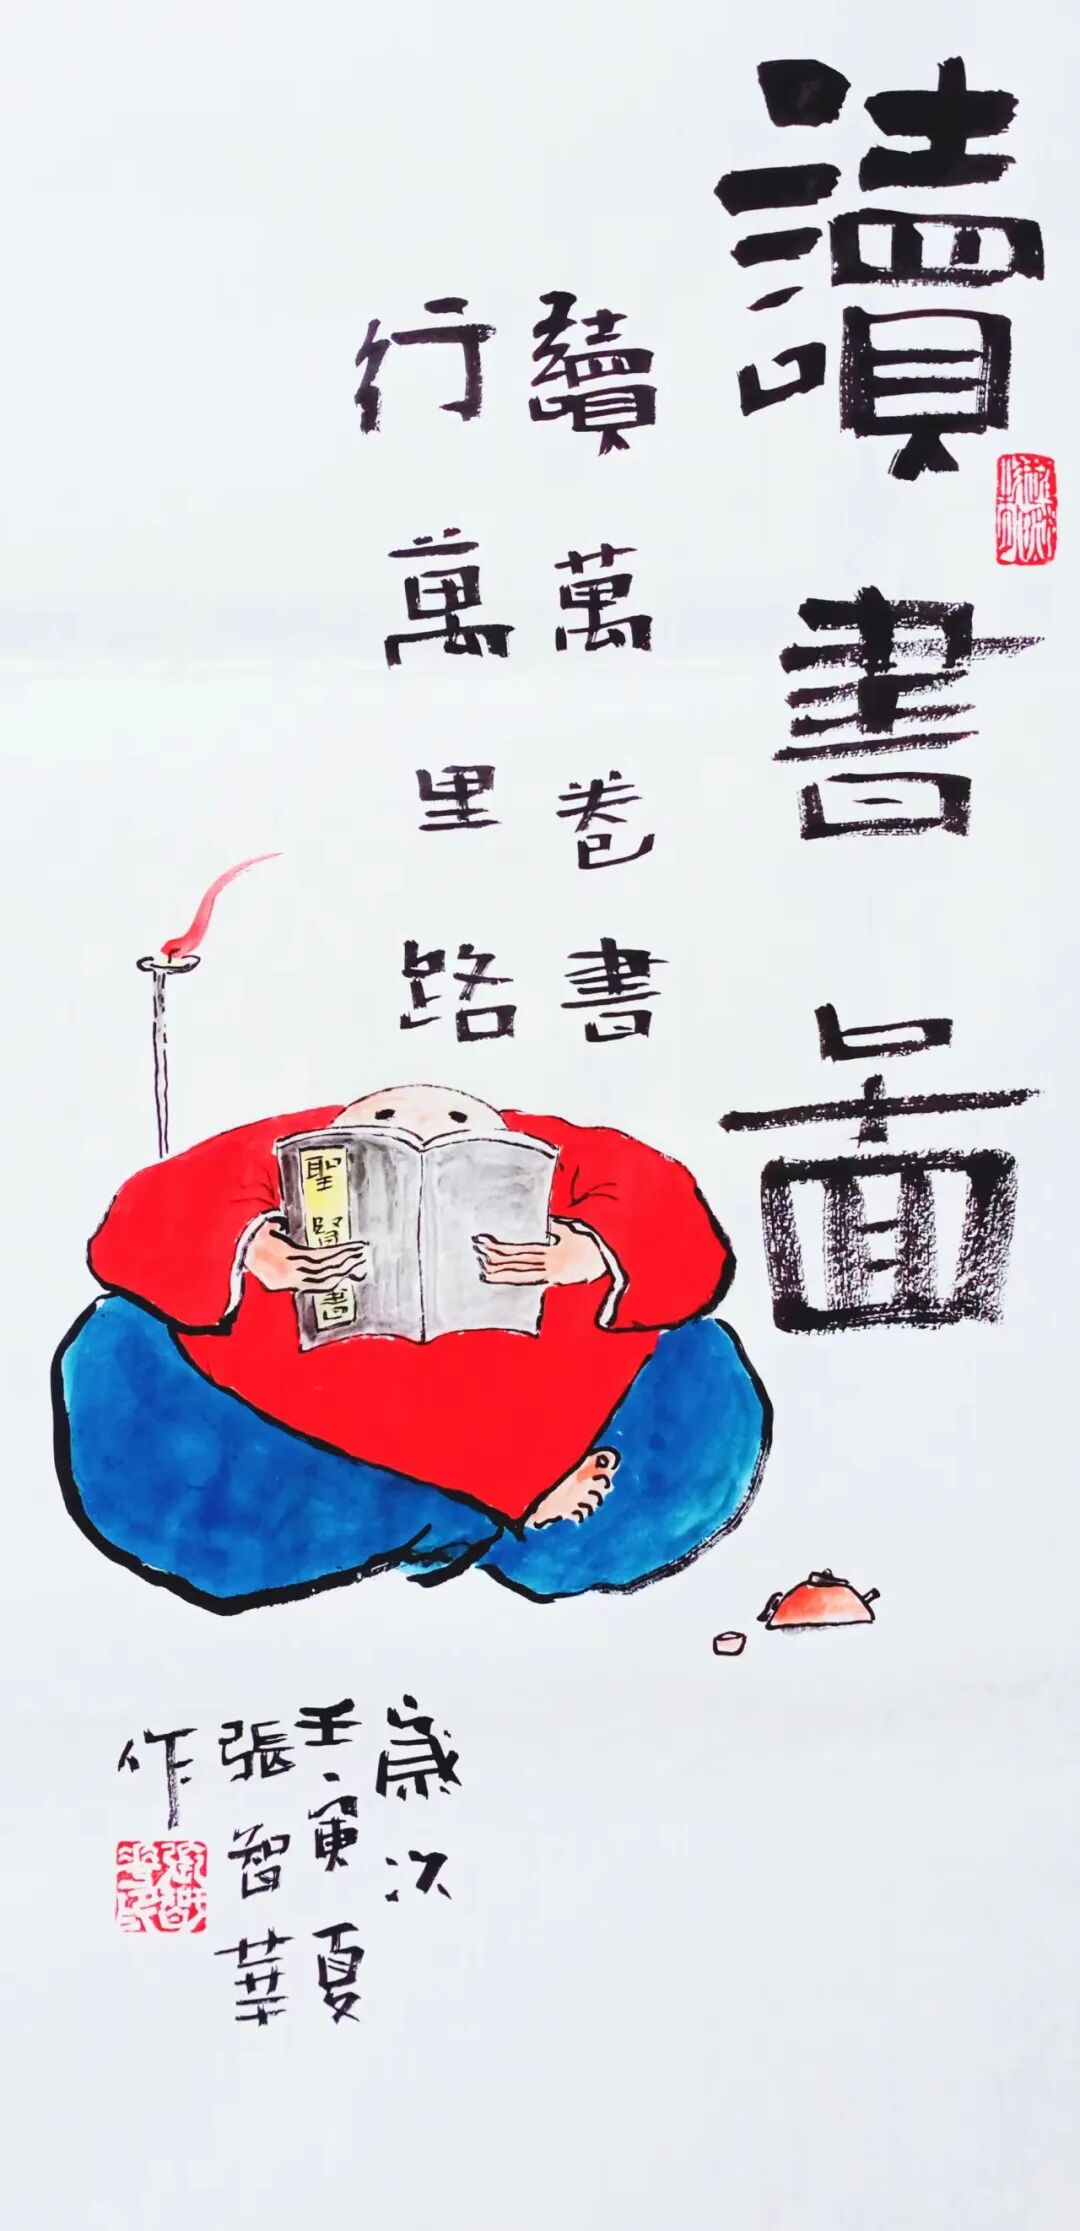 讀書圖
讀萬卷書
行萬里路
聖賢書
歲次
壬寅夏
張智華
作
張智華印